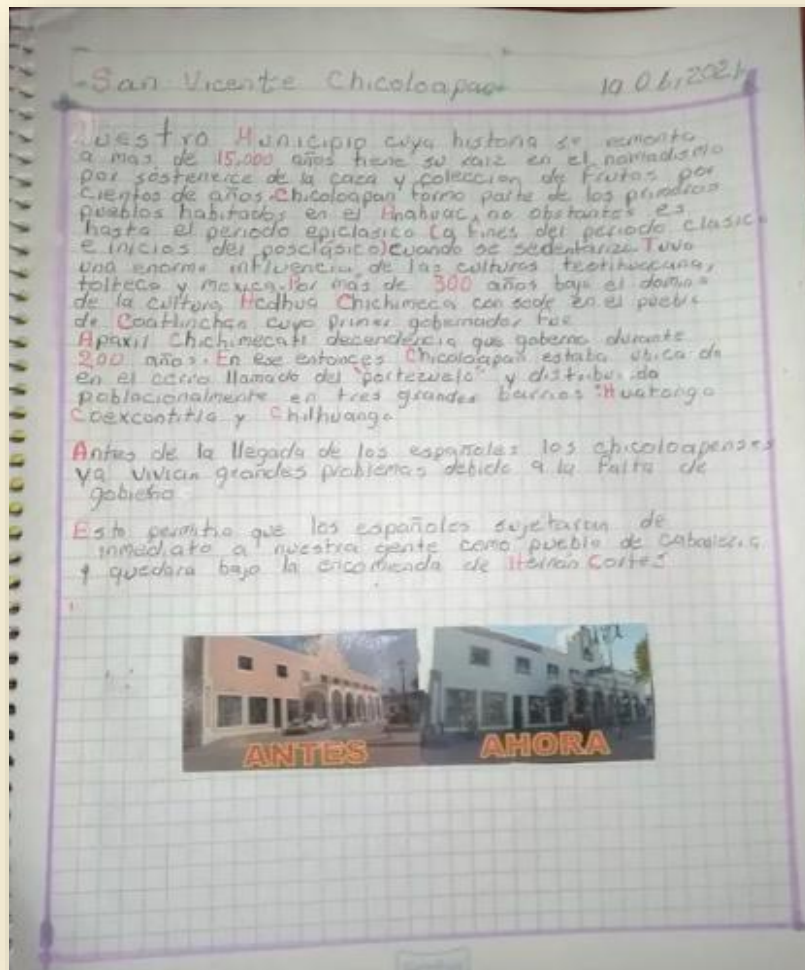 San Vicente Chicoloapan
Nuestro Municipio cuya historia se remonta
a mas de 15,000 años tiene su raiz en el nomadismo
por sostenerce de la caza y coleccion de frutos por
cientos de años. Chicoloapan formo parte de los primeros
pueblos habitados en el Anahuac, no obstante es
hasta el periodo epiclasico (a fines del periodo clasico
e inicios del posclásico) cuando se sedentariza. Tuvo
una enorme influencia de las culturas teotihuacana,
tolteca y mexica. Por más de 300 años bajo el dominio
de la cultura Chichimeca con sede en el pueblo
de Coatlinchan cuyo primer gobernador fue
Apaxil Chichimecatl decendencia que goberno durante
200 años. En ese entonces Chicoloapan estaba ubicado
en el cerro llamado del "portezuelo" y distribuida
poblacionalmente en tres grandes barrios: Huatongo
Coexcontitla y Chilhuango
Antes de la llegada de los españoles los chicoloapenses
ya vivian grandes problemas debido a la falta de
gobierno
Esto permitio que los españoles sujetaran de
inmediato a nuestra gente como pueblo de
y quedara bajo la encomienda de Hernan Cortes
ANTES AHORA